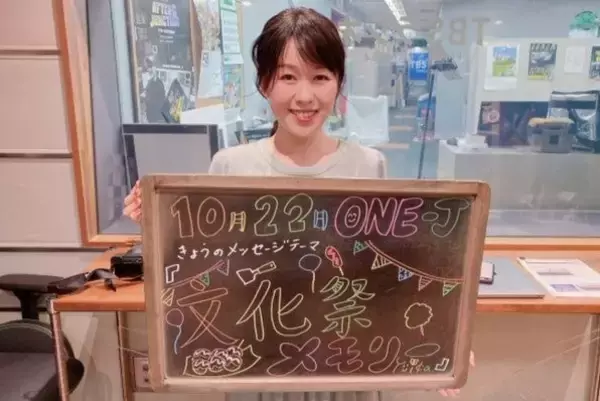 10月22日 ONE-J
きょうのメッセージテーマ
『文化祭
メモリー』
TBS
TBS
AFTER 6 JUNCTION